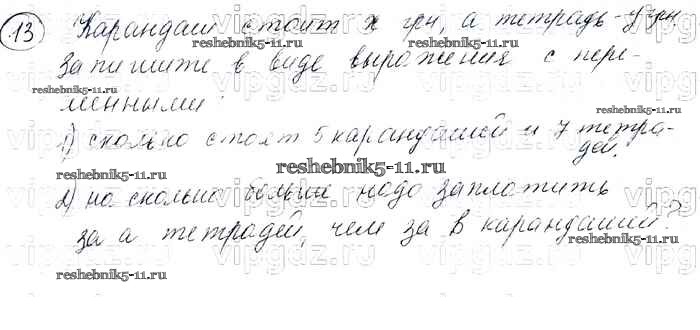 13 Карандаш стоит x грн, а тетрадь - y грн
Запишите в виде выражения с пере-
менными:
1) сколько стоят 5 карандашей и 7 тетра-
дей.
2) на сколько больше надо заплатить
за a тетрадей, чем за b карандашей?
reshebnik5-11.ru
reshebnik5-11.ru
reshebnik5-11.ru
reshebnik5-11.ru
reshebnik5-11.ru
reshebnik5-11.ru
reshebnik5-11.ru